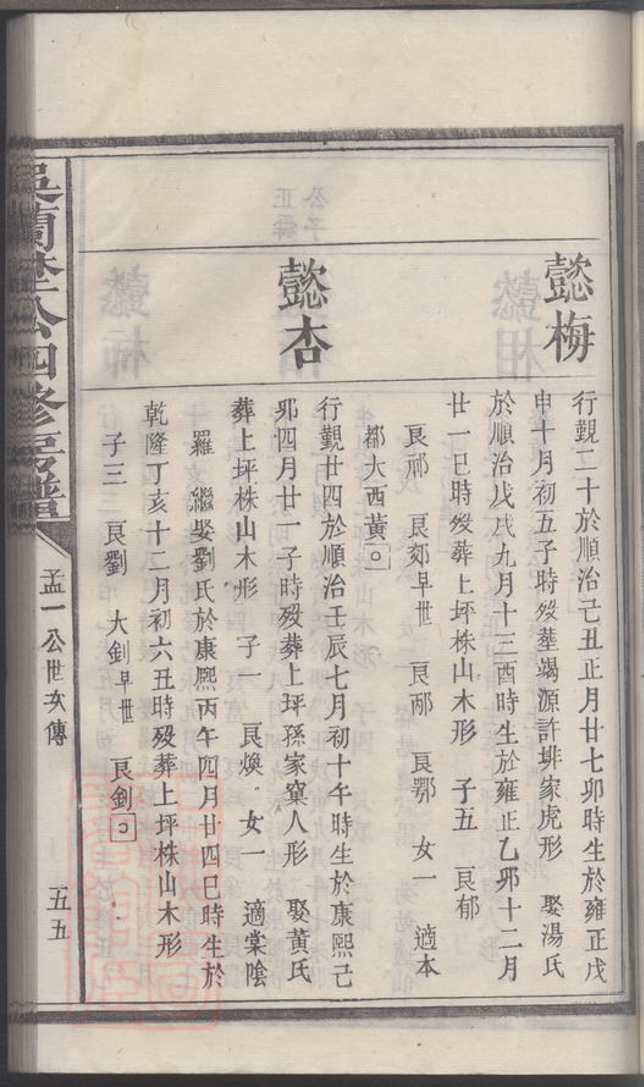 懿梅
行觀二十於順治己丑正月廿七卯時生於雍正戊
申十月初五子時歿塟竭源許排家虎形 娶湯氏
於順治戊戌九月十三酉時生於雍正乙邜十二月
廿一巳時歿葬上坪株山木形 子五 良郁
良祁 良郊早世 良邴 良鄂 女一 適本
都大西黃
懿杏
行觀廿四於順治壬辰七月初十午時生於康熙己
邜四月廿一子時歿葬上坪孫家窠人形 娶黃氏
葬上坪株山木形 子一 良煥 女一 適棠陰
羅 繼娶劉氏於康熙丙午四月廿四巳時生於
乾隆丁亥十二月初六丑時歿葬上坪株山木形
子三 良劉 大釗早世 良釗
吳蘭李公四修房譜
孟一公世次傳
五五